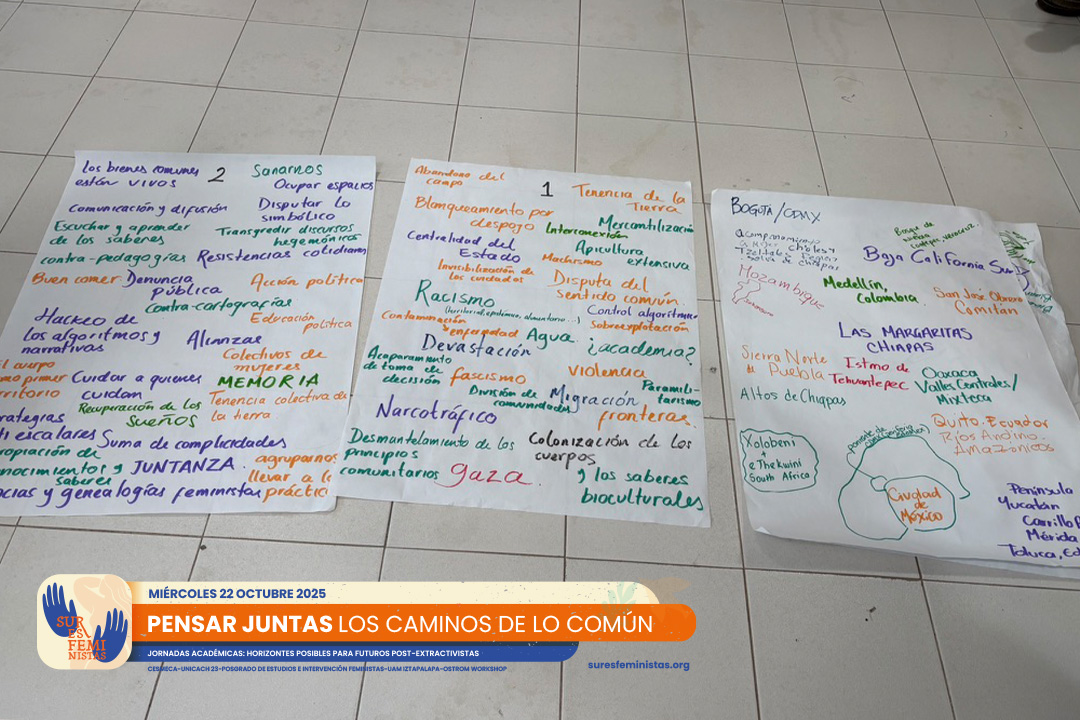 los bienes comunes
están vivos
2
Sanarnos
Ocupar espacios
Comunicación y difusión
Disputar lo
simbólico
Escuchar y aprender
de los saberes
Transgredir discursos
hegemónicos
contra-pedagogías
Resistencias cotidianas
Buen comer
Denuncia
pública
Acción política
contra-cartografías
Hackeo de
los algoritmos y
narrativas
Alianzas
Educación
política
Colectivos de
mujeres
el cuerpo
como primer
territorio
Cuidar a quienes
cuidan
MEMORIA
Recuperación de los
sueños
Tenencia colectiva de
la tierra
escalares
Suma de complicidades
nocimientos y
saberes
JUNTANZA.
agruparnos
llevar a la
práctica
y genealogías feministas
Abandono del
campo
1
Tenencia de la
Tierra
Blanqueamiento por
despojo
Interconexión
Mercantilización
Centralidad del
Estado
Apicultura
extensiva
Machismo
Invisibilización de
los cuidados
Disputa del
sentido común.
Racismo
Control algorítmico
Contaminación
y enfermedad
Sobreexplotación
Agua
¿academia?
Devastación
Acaparamiento
de toma de
decisión
fascismo
violencia
División de
comunidades
Migración
Paramili-
tarismo
Narcotráfico
fronteras
Desmantelamiento de los
principios
comunitarios
Colonización de los
cuerpos
y los saberes
bioculturales
gaza.
BOGOTA/CDMX
Baja California Sur
Mozambique
Medellín,
Colombia
San José Obrero
Comitán
LAS MARGARITAS
CHIAPAS
Sierra Norte
de Puebla
Istmo de
Tehuantepec
Oaxaca
Valles Centrales/
Mixteca
Altos de Chiapas
Quito. Ecuador
Ríos Andino.
Amazónicos
Xolobeni
+
eThekwini
South Africa
Ciudad
de
México
Península
Yucatán
Carrillo
Mérida
Toluca,
SUR
ES
FEMI
NISTAS
MIÉRCOLES 22 OCTUBRE 2025
PENSAR JUNTAS LOS CAMINOS DE LO COMÚN
JORNADAS ACADÉMICAS: HORIZONTES POSIBLES PARA FUTUROS POST-EXTRACTIVISTAS
CESMECA-UNICACH 23-POSGRADO DE ESTUDIOS E INTERVENCIÓN FEMINISTAS-UAM IZTAPALAPA-OSTROM WORKSHOP
suresfeministas.org